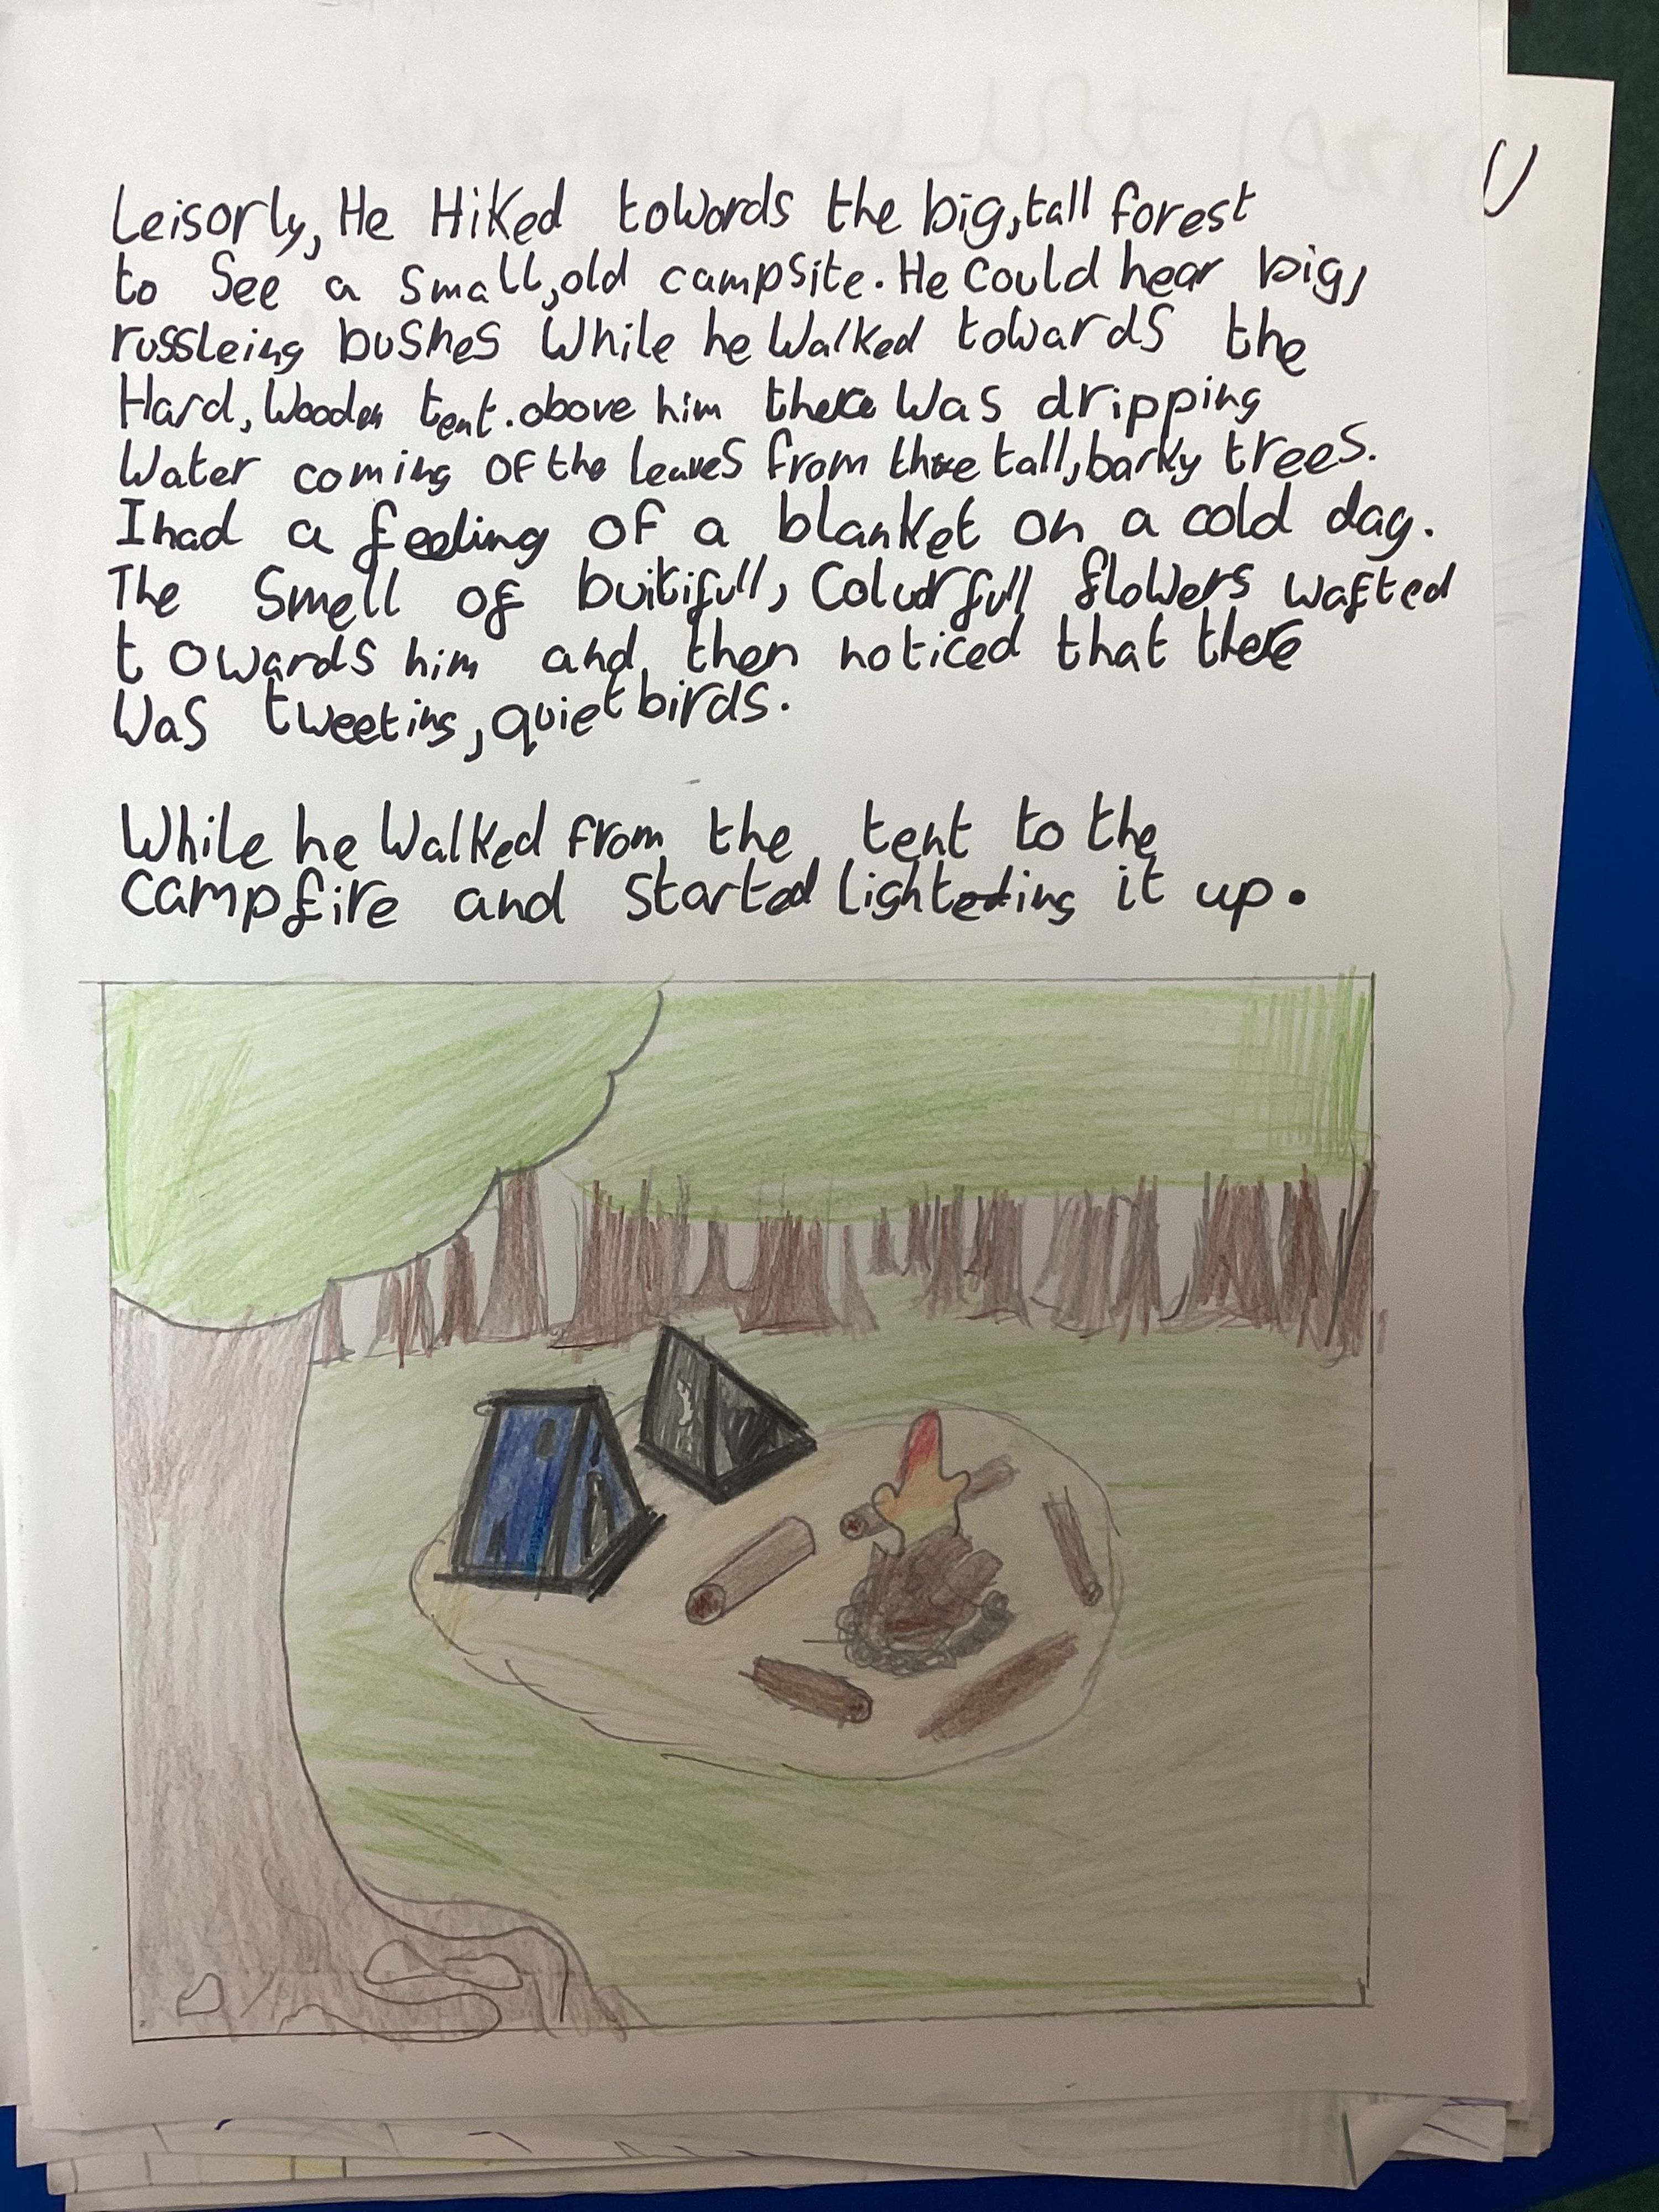 Leisorly, He Hiked towords the big, tall forest
to See a Small, old campsite. He could hear big,
russleing bushes While he Walked towards the
Hard, Wooden tent. above him there Was dripping
Water coming of the leaves from three tall, barky trees.
I had a feeling of a blanket on a cold day.
The Smell of buitifull, Colurfull flowers wafted
towards him and then noticed that there
Was tweeting, quiet birds.
While he Walked from the tent to the
campfire and started lighteding it up.